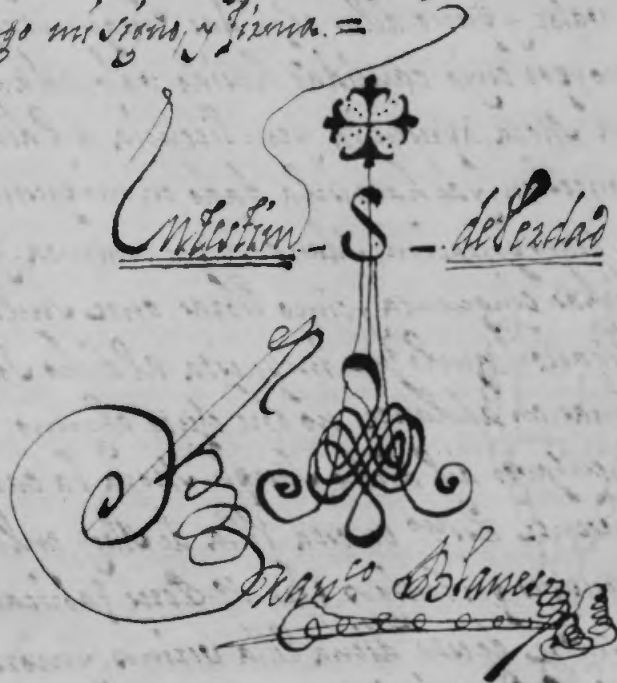 go mi signo, y firma. =
En testim.. - S - de Verdad
Fran.co Blanes